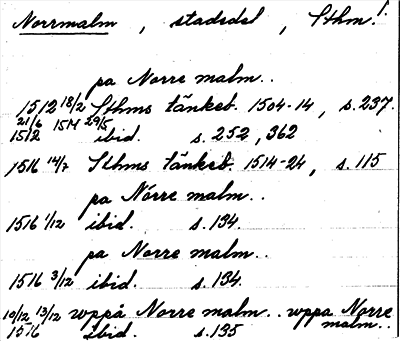 Norrmalm, stadsdel, Sthm. 1.
pa Norre malm..
1512 18/2 Sthms tänkeb. 1504-14, s. 237.
21/6 1514 29/5
1512 ibid. s. 252, 362
1516 14/7 Sthms tänkeb. 1514-24, s. 115
pa Norre malm..
1516 1/12 ibid. s. 134.
pa Norre malm..
1516 3/12 ibid. s. 134.
10/12 13/12 wppå Norre malm.. wppa Norre
malm..
1516 ibid. s. 135